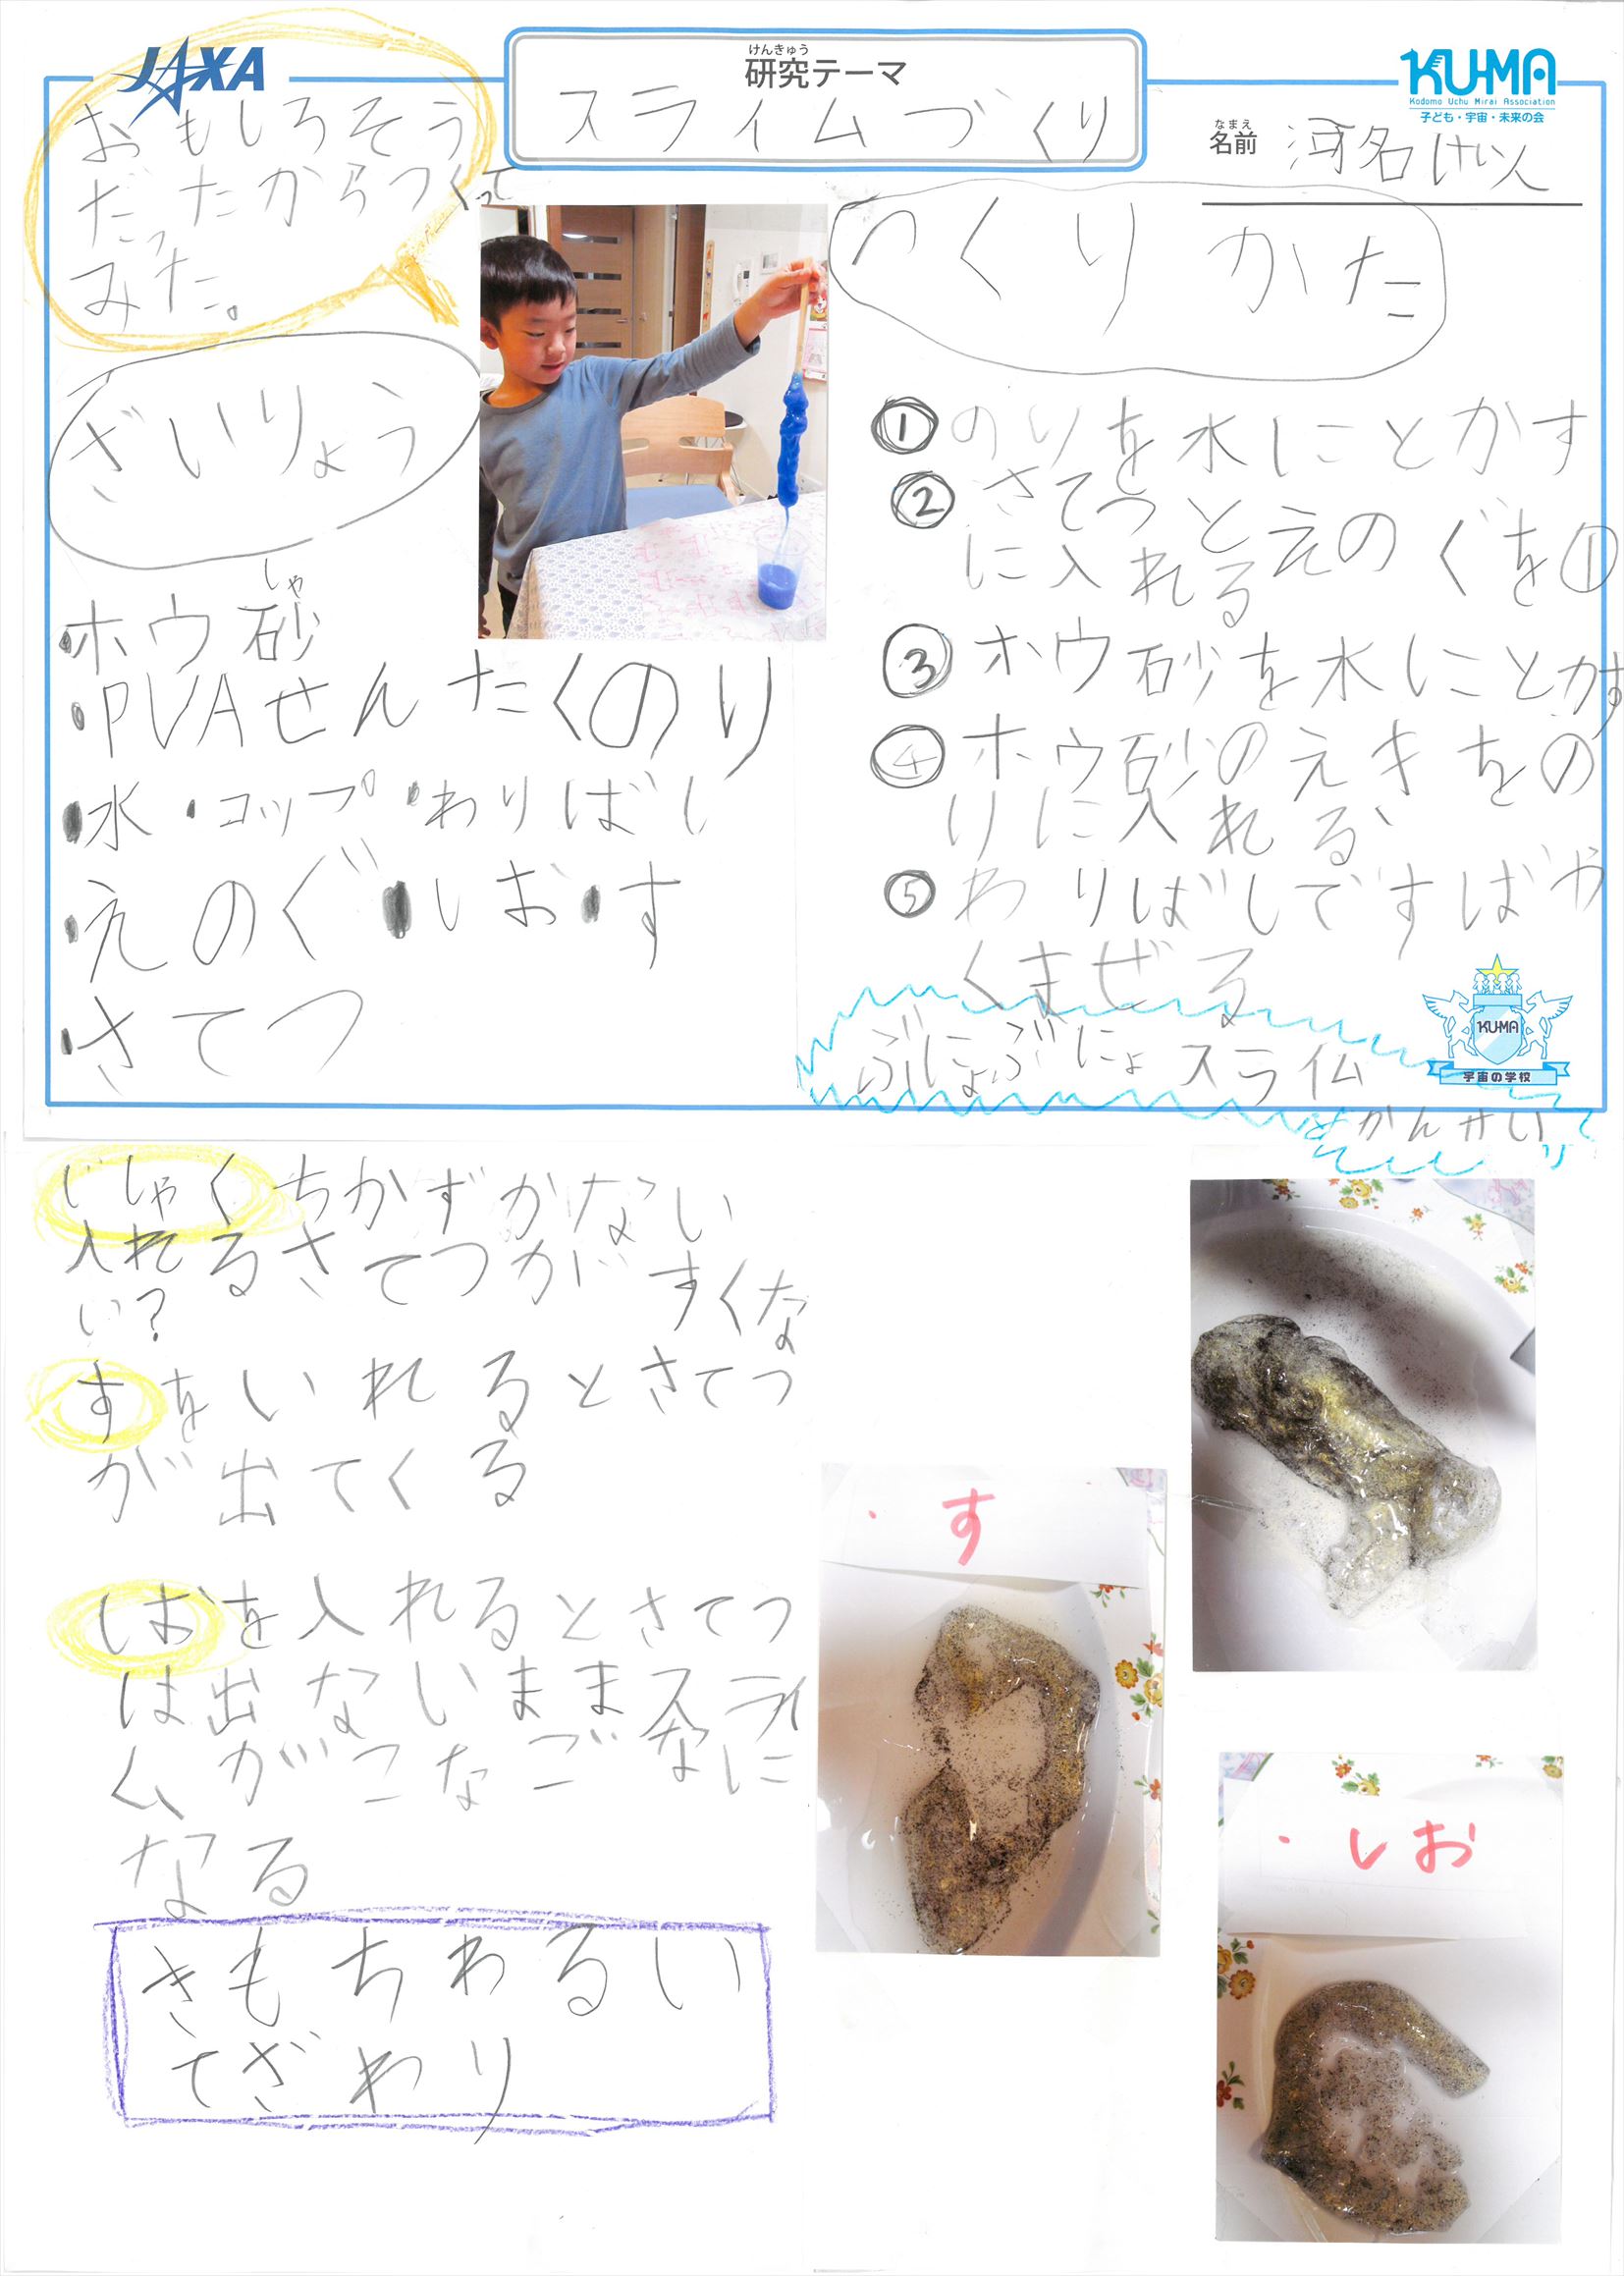 JAXA
けんきゅう
研究テーマ
スライムづくり
KU-MA
Kodomo Uchu Mirai Association
子ども・宇宙・未来の会
なまえ
名前 河名けい人
おもしろそう
だったからつくって
みた。
ざいりょう
しゃ
・ホウ砂
・PVAせんたくのり
・水・コップ・わりばし
・えのぐ・しお・す
・さてつ
つくりかた
①のりを水にとかす
②さてつとえのぐを①
に入れる
③ホウ砂を水にとかす
④ホウ砂のえきをの
りに入れる
⑤わりばしですばや
くまぜる
ぶにょぶにょスライム
かんせい
KU-MA
宇宙の学校
じしゃくちかずかない
入れるさてつがすくな
い?
すをいれるとさてつ
が出てくる
しおを入れるとさてつ
は出ないままスライ
ムがこなごなに
なる
きもちわるい
てざわり
・す
・しお